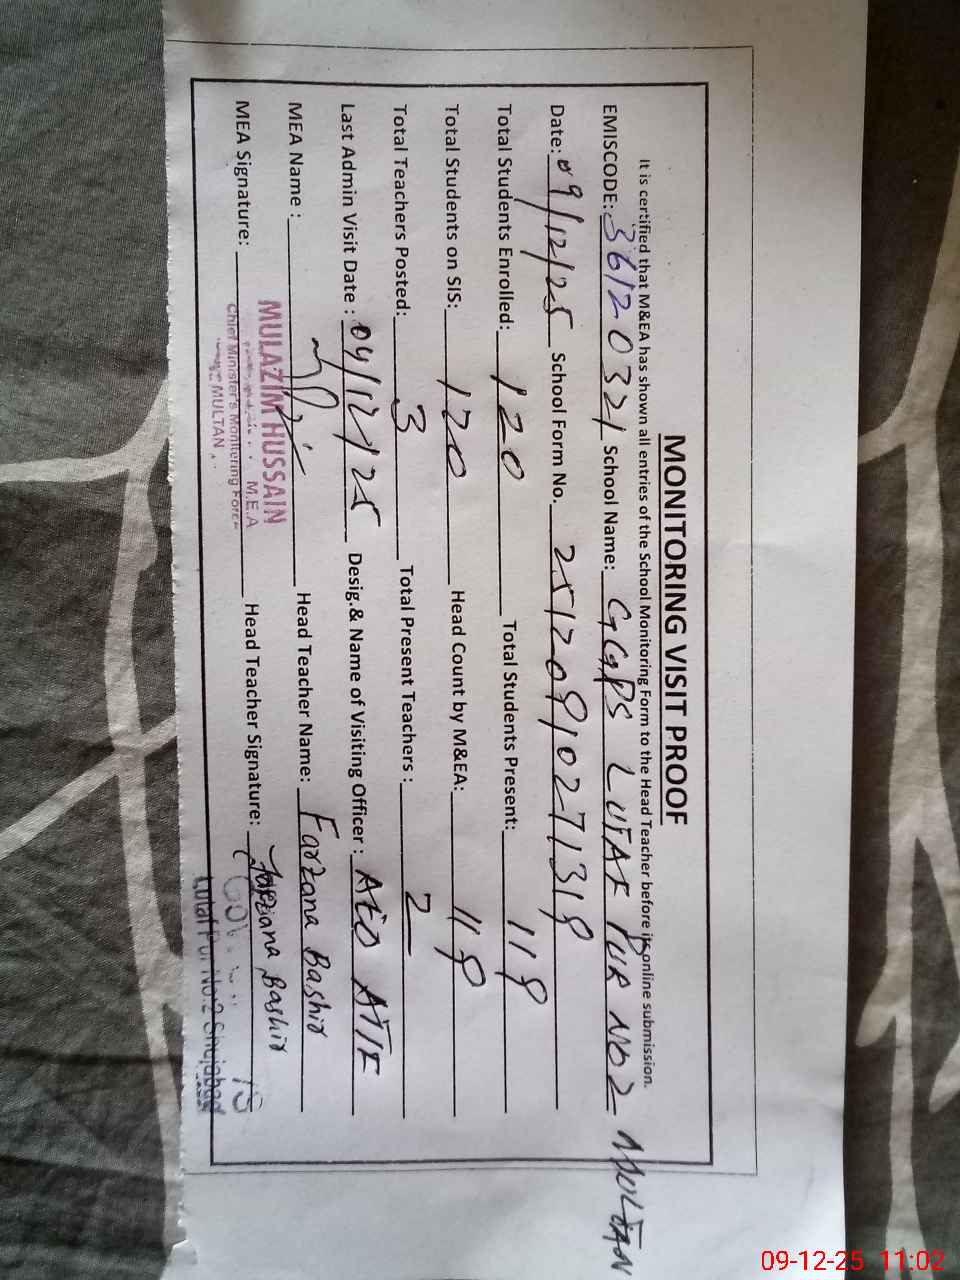 MONITORING VISIT PROOF
It is certified that M&EA has shown all entries of the School Monitoring Form to the Head Teacher before its online submission.
EMISCODE: 36120321 School Name: GGPS LUTAF PUR NO 2 MULTAN
Date: 09/12/25 School Form No. 25120910271319
Total Students Enrolled: 120 Total Students Present: 119
Total Students on SIS: 120 Head Count by M&EA: 119
Total Teachers Posted: 3 Total Present Teachers : 2
Last Admin Visit Date : 04/12/25 Desig.& Name of Visiting Officer : AEO ATIF
MEA Name : Head Teacher Name: Farzana Bashir
MEA Signature: Head Teacher Signature: Farzana Bashir
MULAZIM HUSSAIN
M.E.A
Chief Minister's Monitering Force
MULTAN
Lutaf Pur No.2 Shujabad
09-12-25 11:02